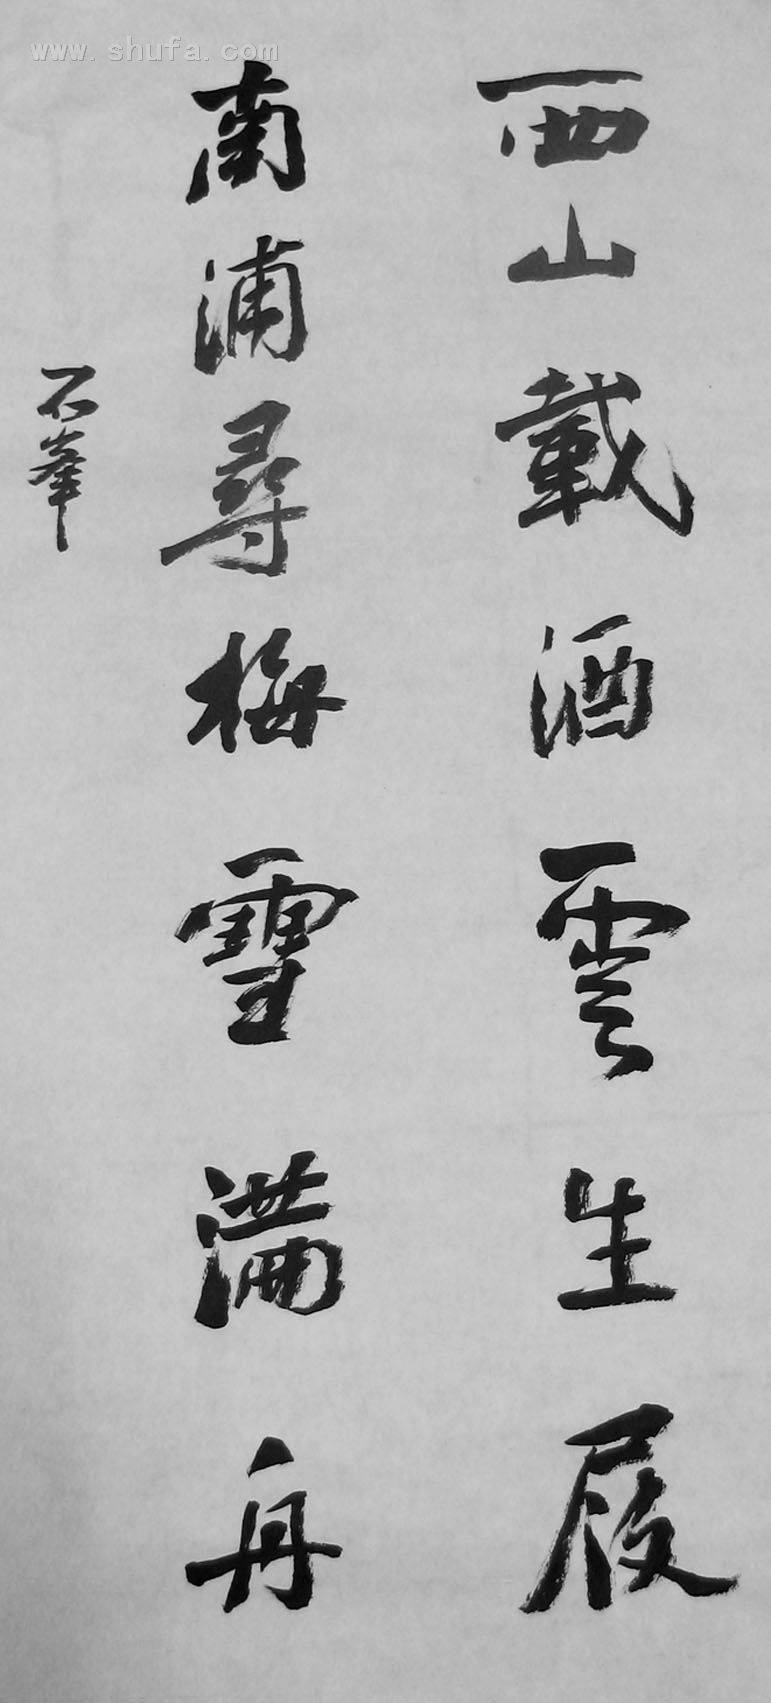 西山載酒雲生屐
南浦尋梅雪滿舟
石峯
www.shufa.com